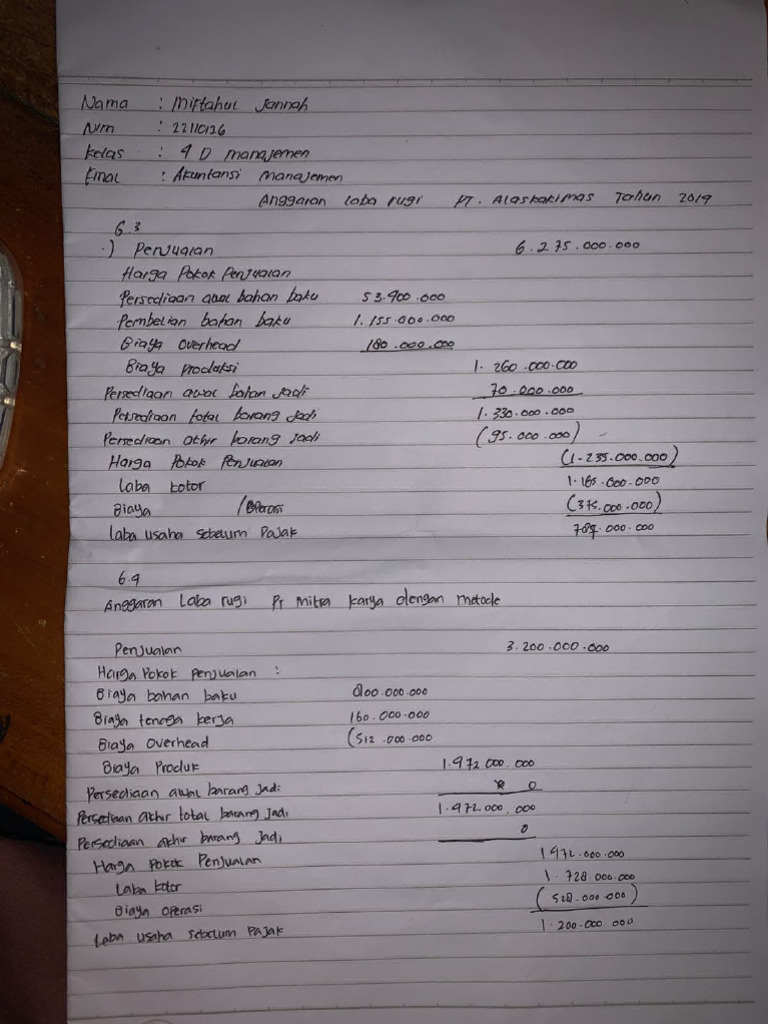 Nama : Miftahul Jannah
Nim : 22110126
Kelas : 4 D manajemen
Final : Akuntansi Manajemen
Anggaran laba rugi PT. Alaskakimas Tahun 2019
6.3
.) Penjualan 6.275.000.000
Harga Pokok Penjualan
Persediaan awal bahan baku 53.900.000
Pembelian bahan baku 1.155.000.000
Biaya Overhead 180.000.000
Biaya Produksi 1.260.000.000
Persediaan awal bahan jadi 70.000.000
Persediaan total barang jadi 1.330.000.000
Persediaan akhir barang jadi (95.000.000)
Harga Pokok Penjualan (1.235.000.000)
Laba kotor 1.165.000.000
Biaya /Operasi (375.000.000)
Laba usaha sebelum Pajak 789.000.000
6.4
Anggaran Laba rugi PT Mitra Karya dengan metode
Penjualan 3.200.000.000
Harga Pokok Penjualan :
Biaya bahan baku 800.000.000
Biaya tenaga kerja 160.000.000
Biaya Overhead (512.000.000
Biaya Produk 1.972.000.000
Persediaan awal barang Jadi 0
Persediaan akhir total barang Jadi 1.472.000.000
Persediaan akhir barang Jadi 0
Harga Pokok Penjualan 1472.000.000
Laba kotor 1.728.000.000
Biaya operasi (528.000.000)
Laba usaha sebelum Pajak 1.200.000.000